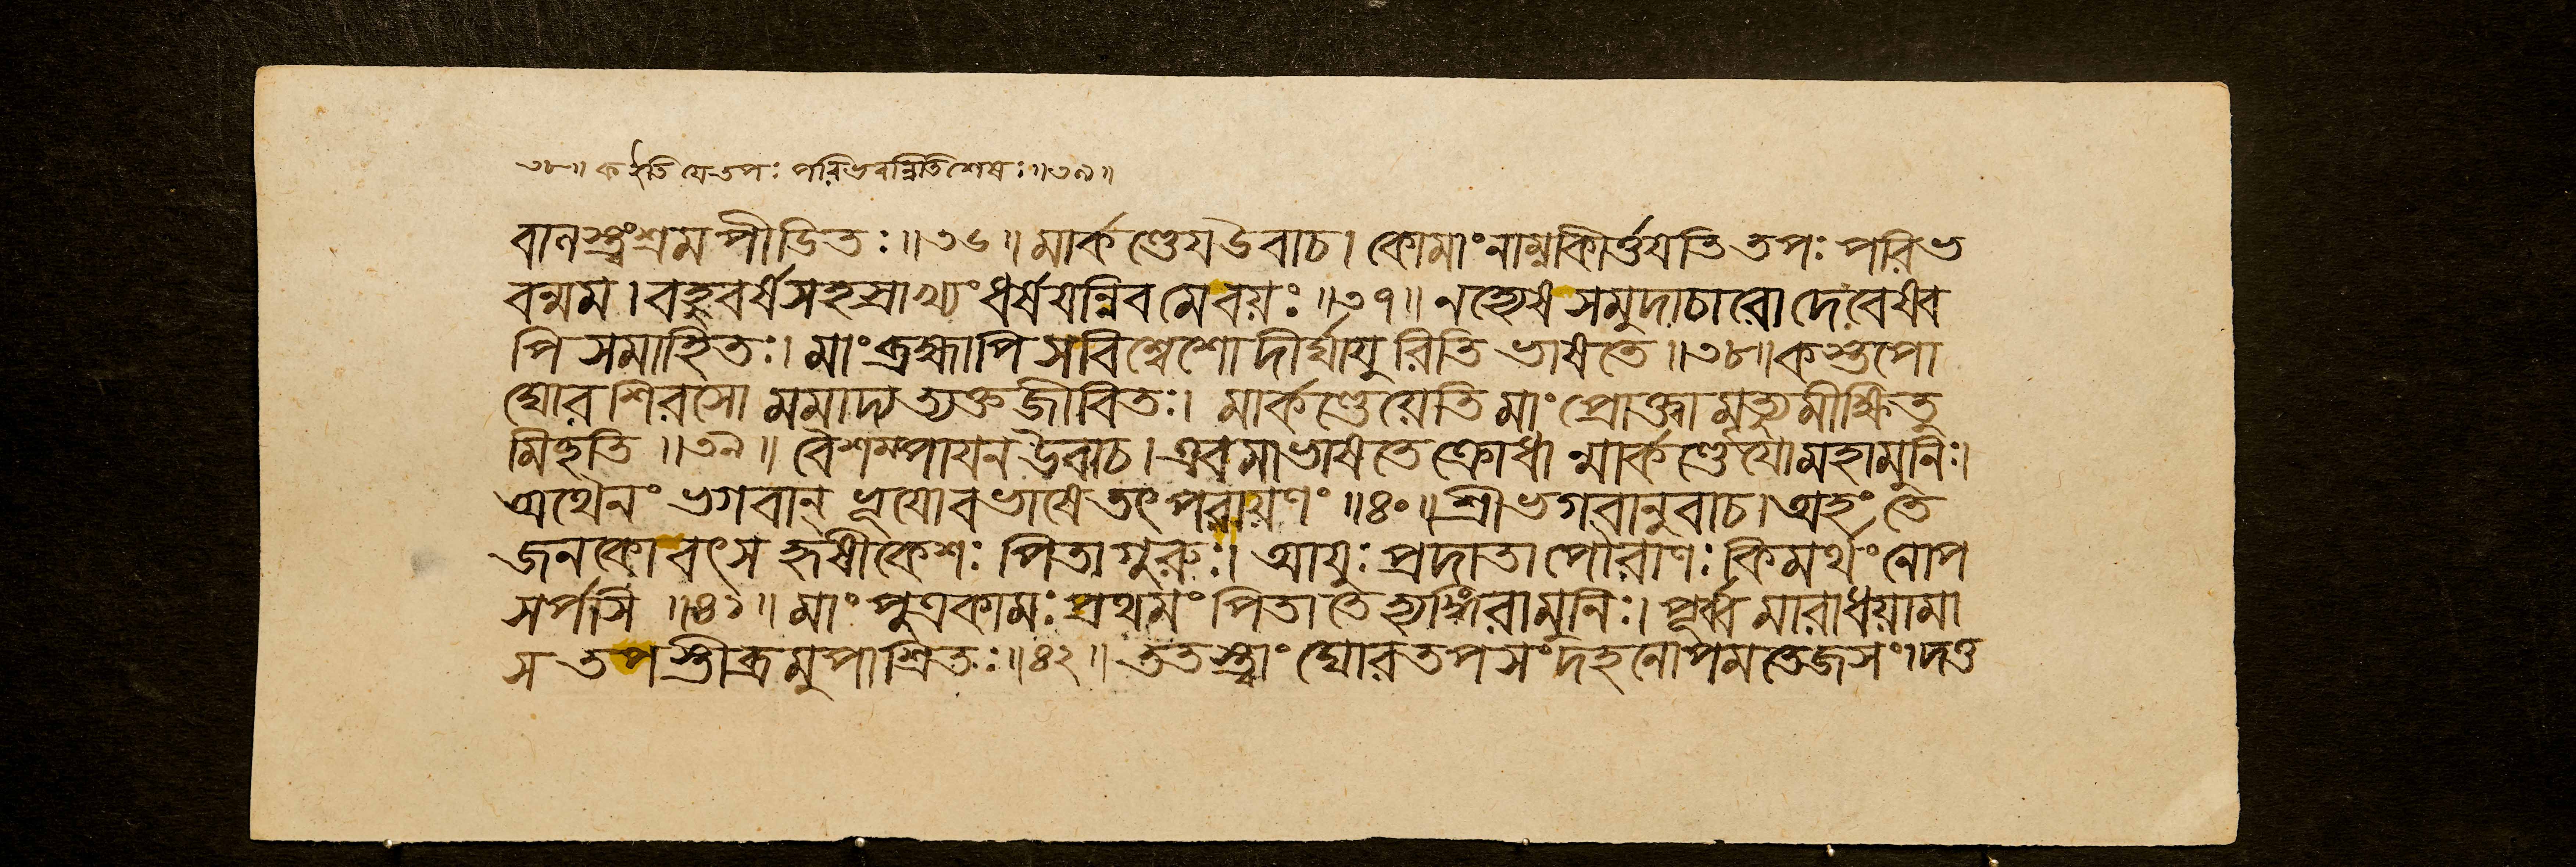 ৩৮॥ ক ইতি যে তপঃ পরিভবন্নিতিশেষঃ॥৩৯॥
বানস্ত্বংশ্রমপীডিতঃ॥৩৬॥মার্কণ্ডেযউবাচ। কোমাংনাম্নাকীর্ত্তযতি তপঃ পরিভ
বন্মম।বহুবর্ষসহস্রাখ্যংধর্ষযন্নিবমেবয়ঃ॥৩৭॥নহ্যেষসমুদাচারোদেবেষ্বব
পিসমাহিতঃ।মাংব্রহ্মাপিসবিশ্বেশোদীর্ঘাযুরিতিভাষতে॥৩৮॥কস্তপো
ঘোরশিরসোমমাদ্যত্যক্তজীবিতঃ। মার্কণ্ডেয়েতিমাংপ্রোক্ত্বামৃত্যুমীক্ষিতু
মিহতি॥৩৯॥বৈশম্পাযনউবাচ।এবমাভাষতেক্রোধান্মার্কণ্ডেযোমহামুনিঃ।
অথৈনংভগবান্ ভূযোবভাষেতৎপরায়ণং॥৪০॥শ্রীভগবানুবাচ।অহংতে
জনকোবৎসহৃষীকেশঃ পিতাগুরুঃ। আযুঃপ্রদাতাপৌরাণঃকিমর্থংনোপ
সর্পসি॥৪১॥মাংপুত্রকামঃপ্রথমংপিতাতেহ্যঙ্গিরামুনিঃ। পূর্ব্বমারাধয়ামা
সতপস্তীব্রমুপাশ্রিতঃ॥৪২॥ততস্ত্বাংঘোরতপসংদহনোপমতেজসং।দত্ত